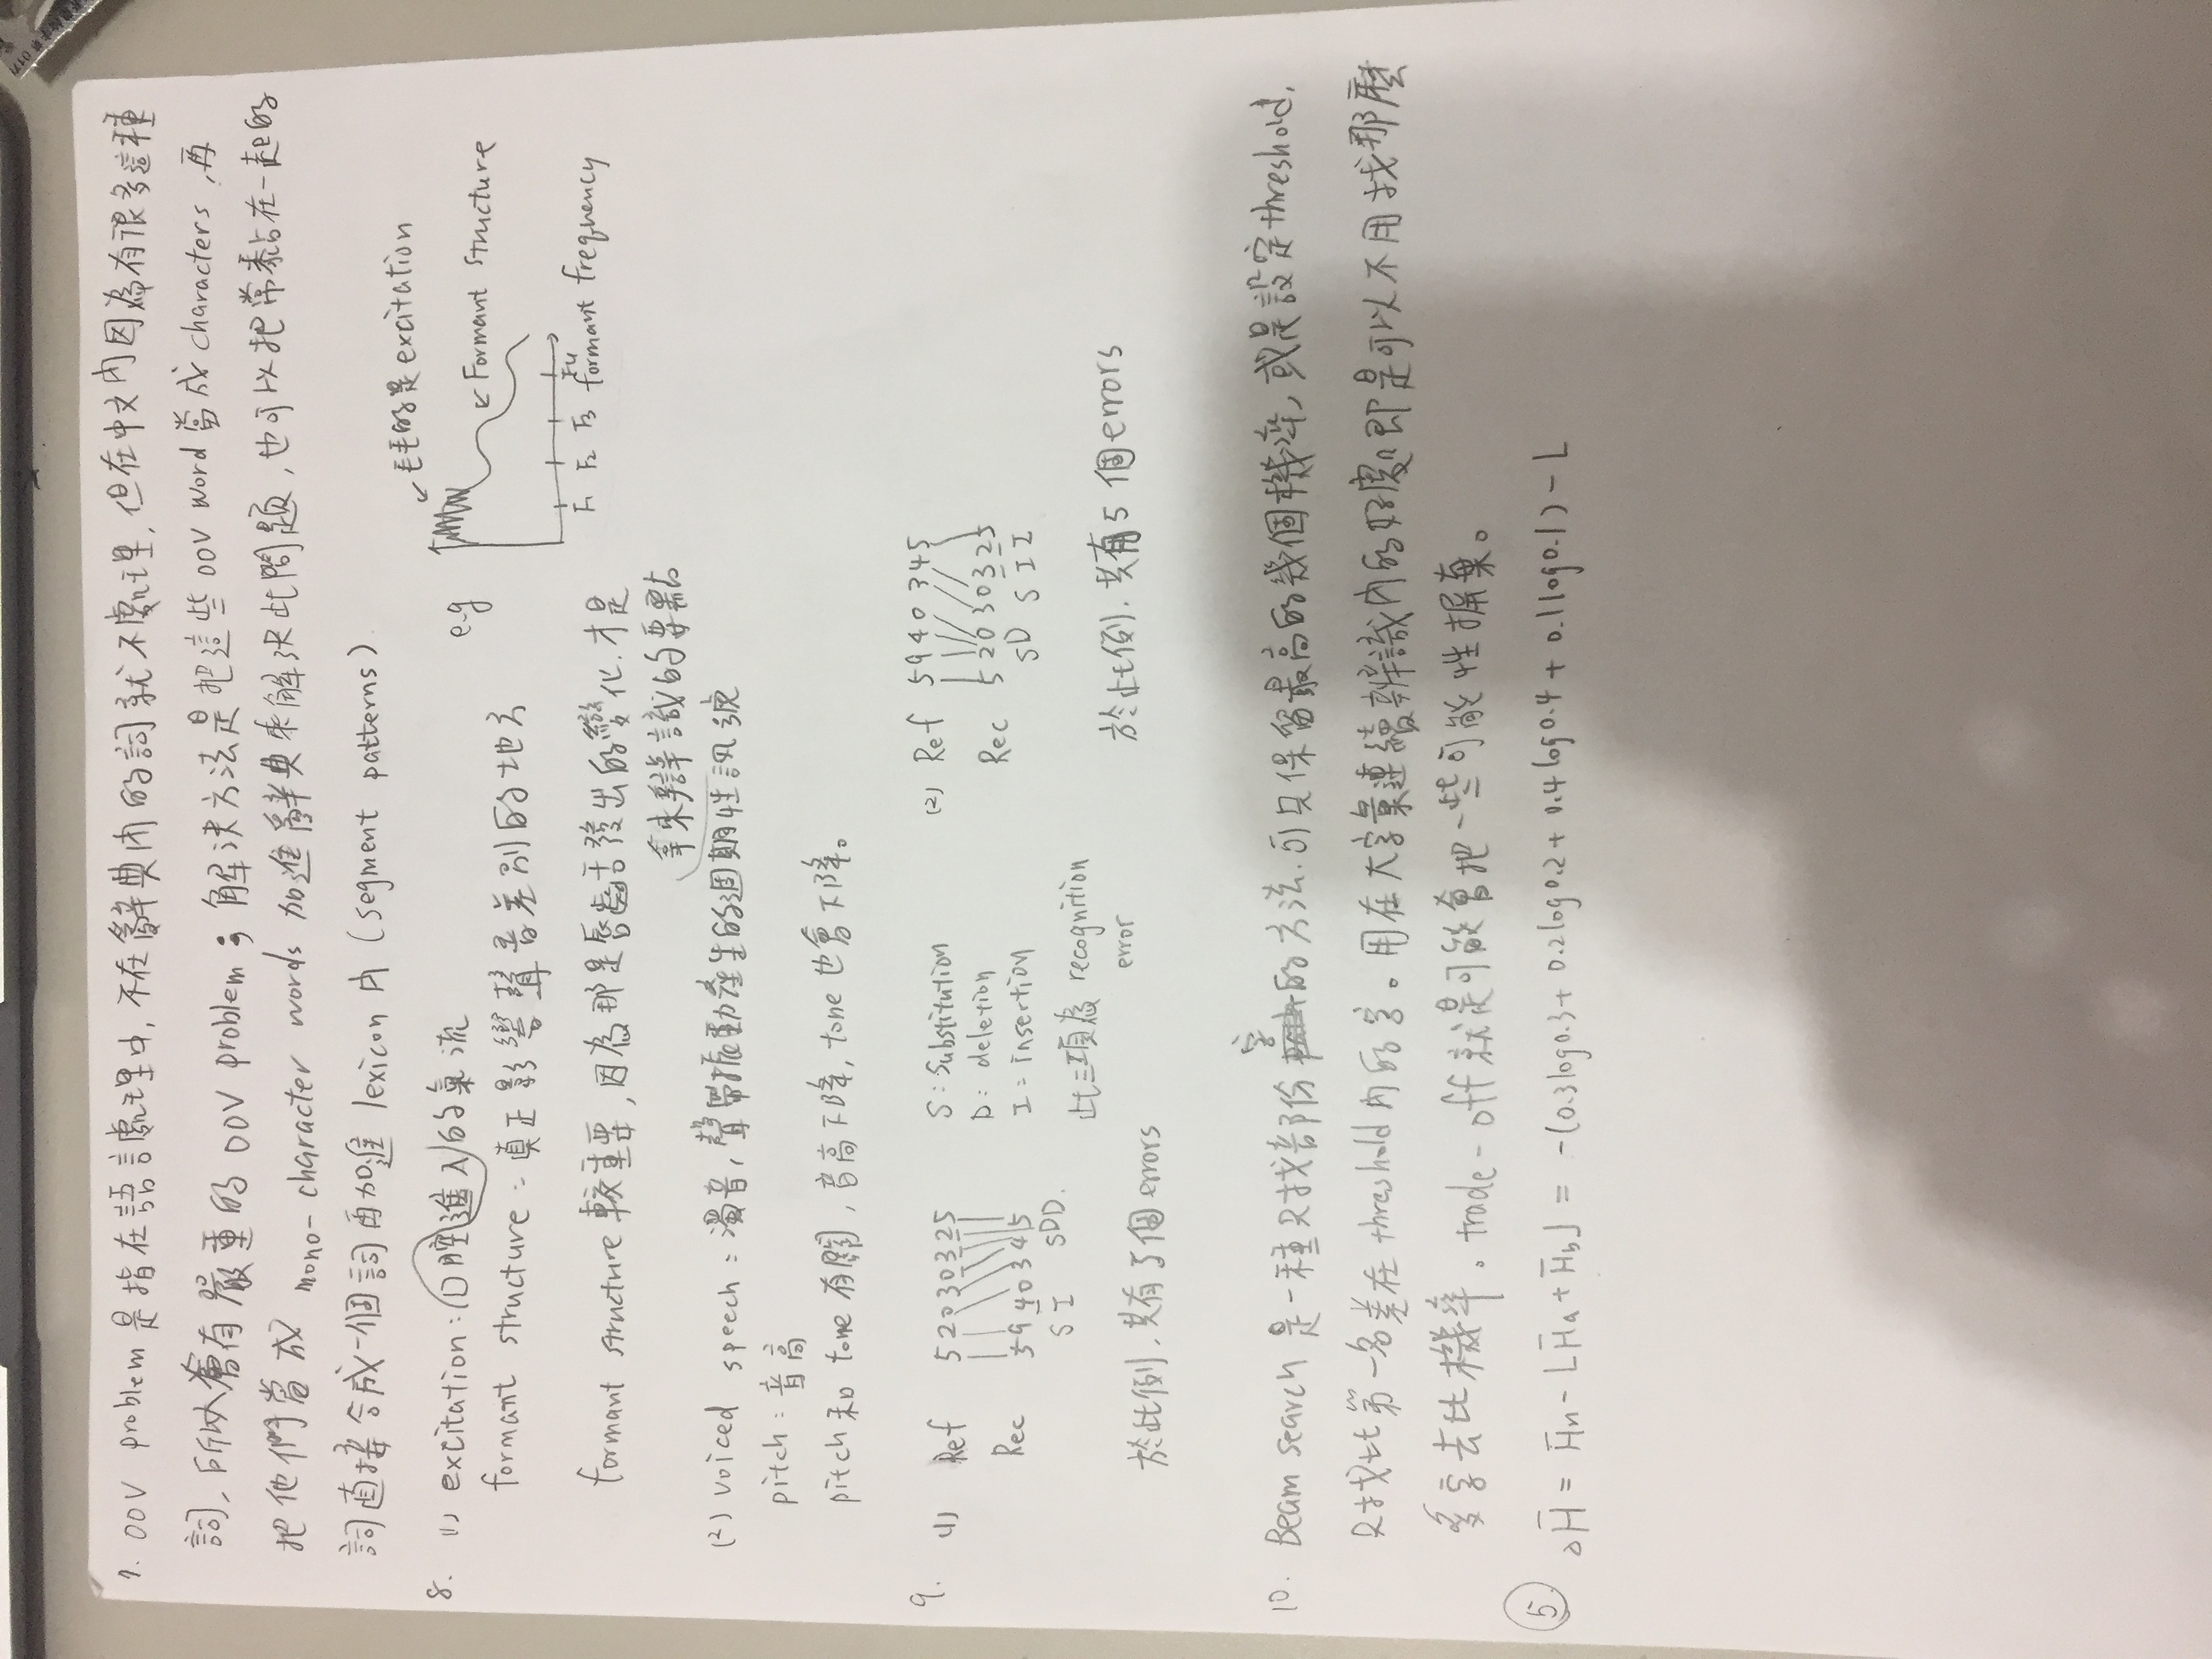 7. OOV problem 是指在語言處理中, 不在辭典內的詞就不處理, 但在中文內因為有很多這種
詞, 所以會有嚴重的 OOV problem; 解決方法是把這些 OOV word 當成 characters, 再
把他們當成 mono-character words 加進辭典來解決此問題, 也可以把常黏在一起的
詞直接合成一個詞再加進 lexicon 內 (segment patterns)
8. (1) excitation: 口腔進入的氣流
formant structure: 真正影響聲音差別的地方
e.g
毛毛的是 excitation
Formant structure
F1 F2 F3 F4
formant frequency
formant structure 較重要, 因為那是唇齒舌發出的變化, 才是
拿來辯識的要點
(2) voiced speech: 濁音, 聲帶振動產生的週期性訊號
pitch: 音高
pitch 和 tone 有關, 音高下降, tone 也會下降。
9. (1) Ref 52030325
Rec 5940345
S I S D D.
S: Substitution
D: deletion
I: insertion
此三項為 recognition
error
於此例, 共有5個errors
(2) Ref 5940 345
Rec 5 20 303 25
S D S I I
於此例, 共有5個errors
10. Beam search 是一種只找部份字的方法, 可只保留最高的幾個機率, 或是設定threshold,
只找比第一名差在 threshold 內的字。用在大字彙連續辨識內的好處, 即是可以不用找那麼
多字去比機率。trade-off 就是可能會把一些可能性摒棄。
5. △H̄ = H̄n - [H̄a + H̄b] = -(0.3log0.3 + 0.2log0.2 + 0.4log0.4 + 0.1log0.1) - [